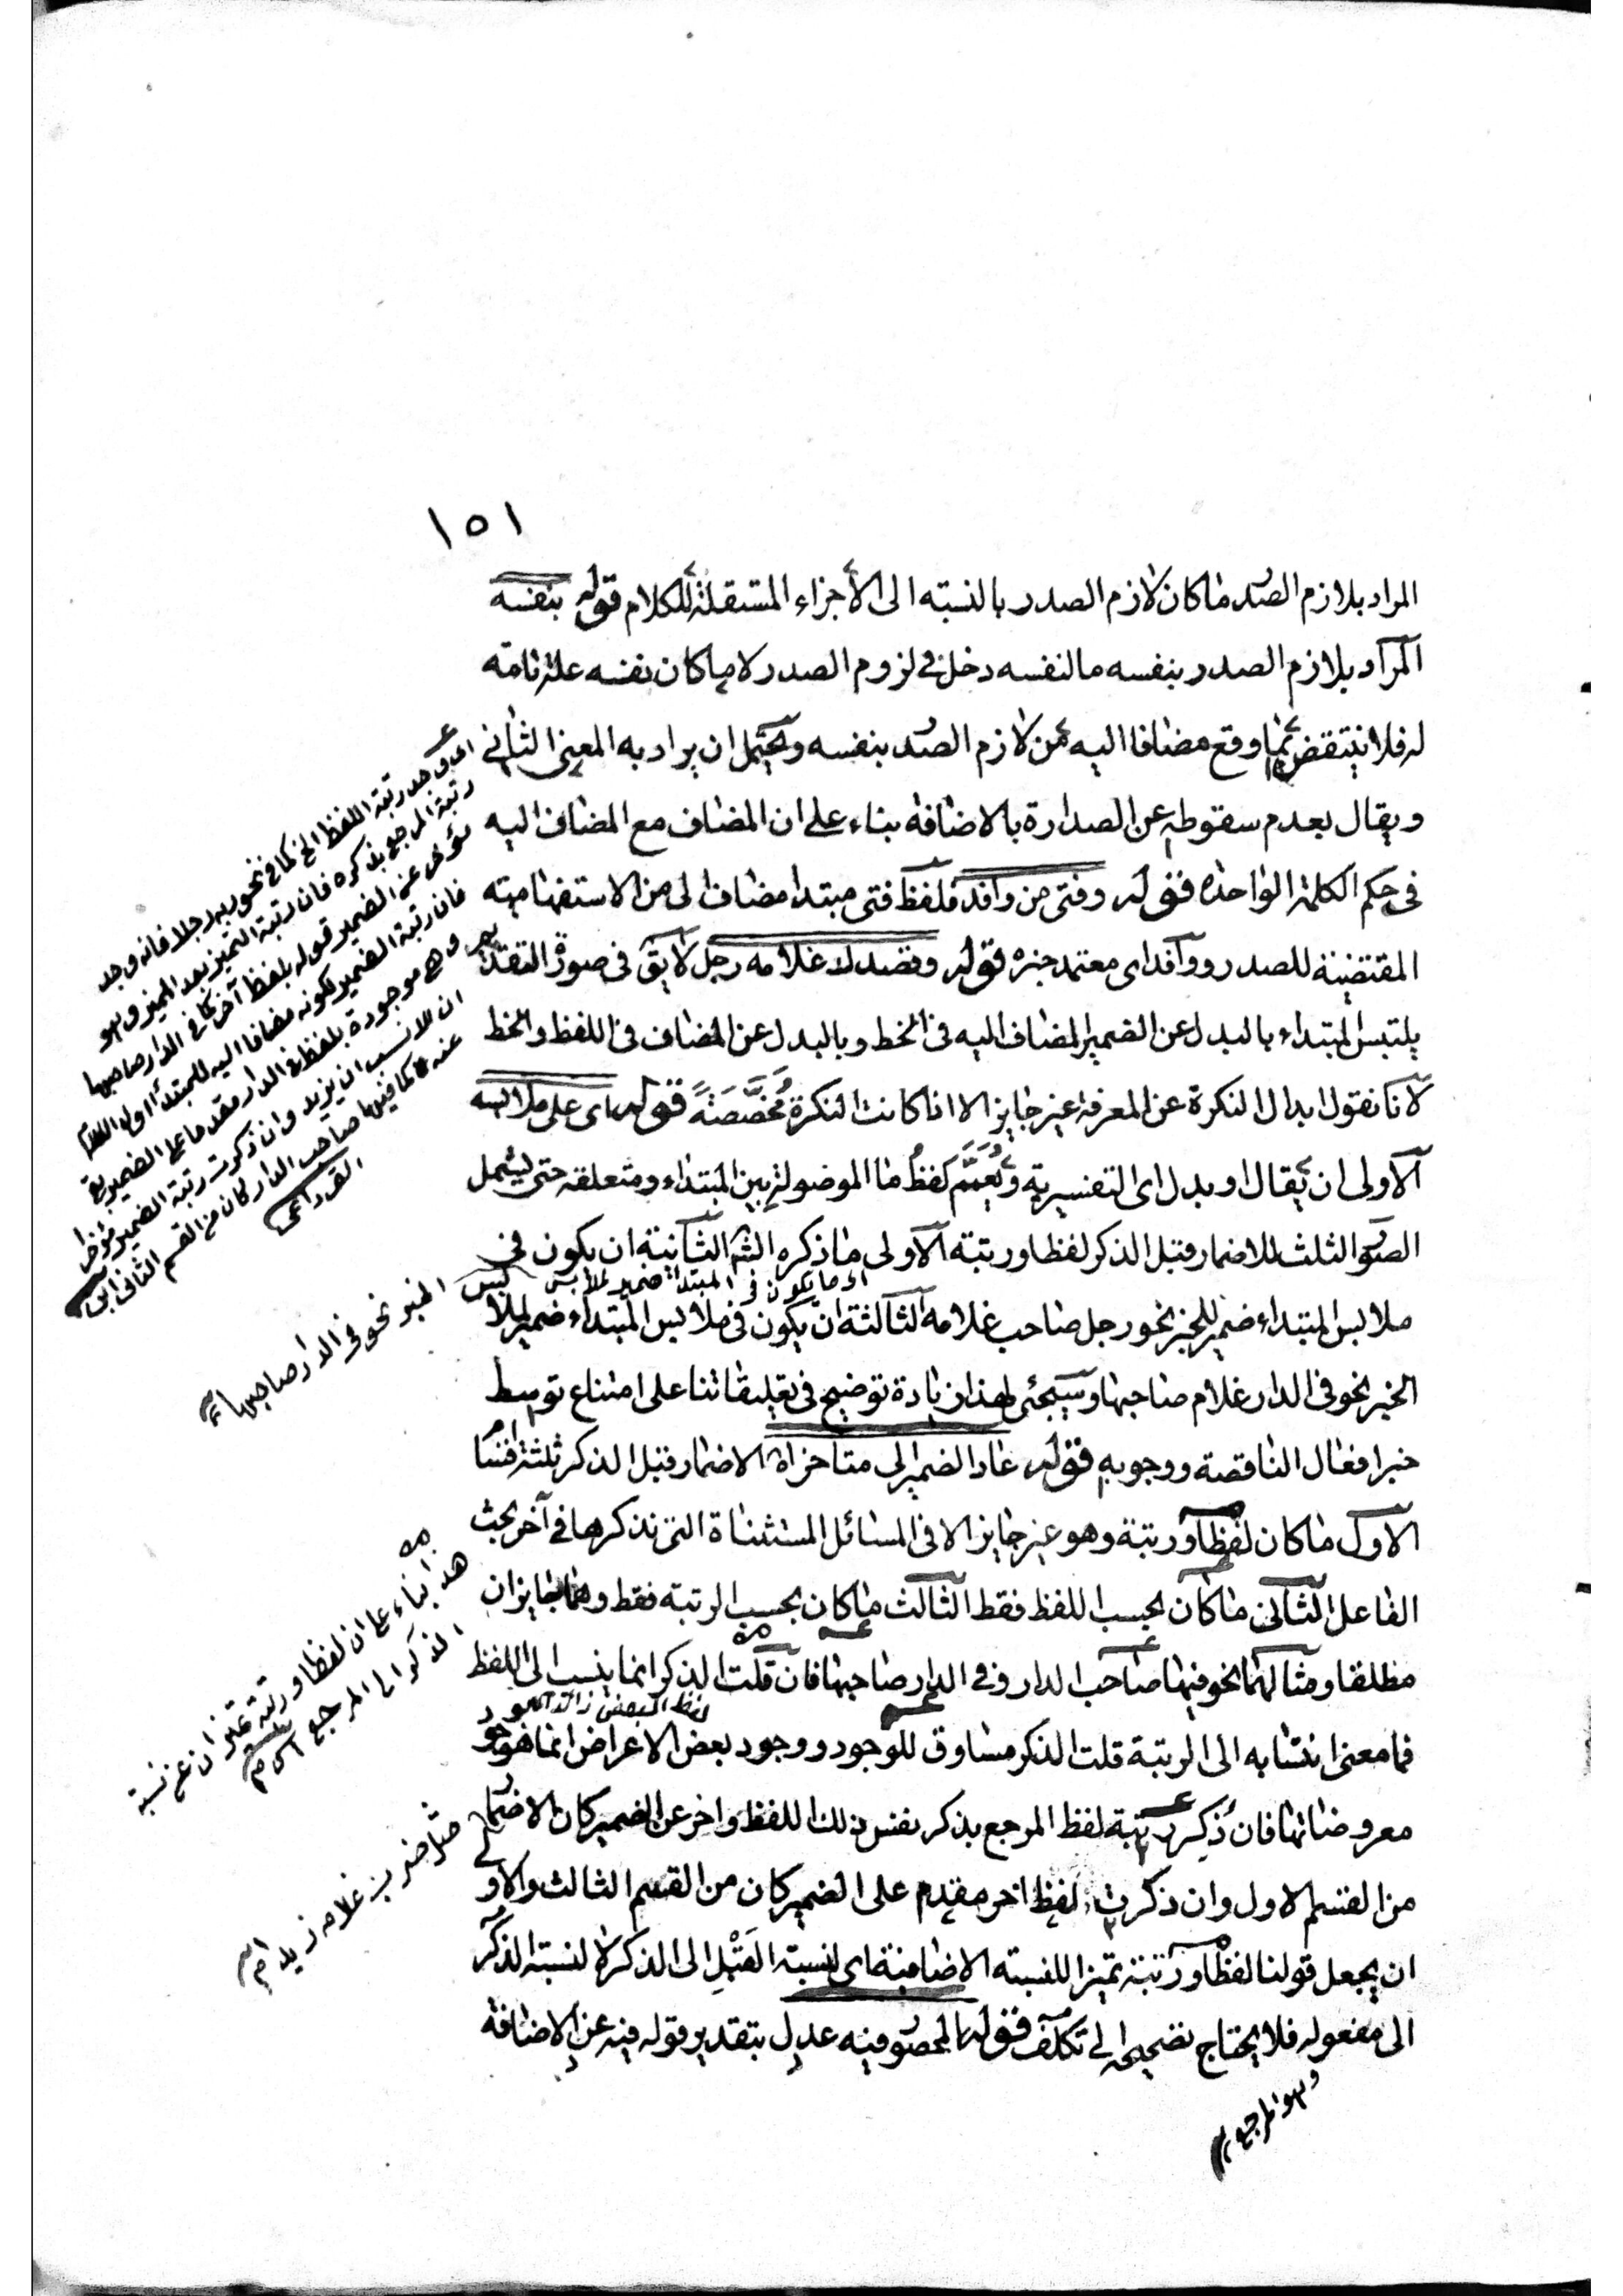 ١٥١
المراد بلازم الصدر ما كان لازم الصدر بالنسبه الى الأجزاء المستقلة للكلام قوله بنفسه
المراد بلازم الصدر بنفسه ما لنفسه دخل في لزوم الصدر لا ما كان نفسه علة تامة
له فلا ينتقض بما وقع مضافا اليه من لازم الصدر بنفسه ويحتمل ان يراد به المعنى الثاني
ويقال بعدم سقوطه عن الصدارة بالاضافة بناء على ان المضاف مع المضاف اليه
في حكم الكلمة الواحدة قوله وفتى من وافد فلفظ فتى مبتدا مضاف الى من الاستفهامية
المقتضية للصدر ووافد اى معتمد خبره قوله وقصدك غلامه رجل لا يق في صورة التقد
يلتبس المبتداء بالبدل عن الضمير المضاف اليه في الخط وبالبدل عن المضاف في اللفظ والخط
لانا نقول ابدال النكرة عن المعرفة غير جايز الا اذا كانت النكرة مُخَصَّصَةً قوله اى على ملابسه
الاولى ان يقال او بدل اى التفسيرية ويُعَمَّم لفظُ ما الموصولة بين المبتداء ومتعلقه حتى يشمل
الصور الثلث للاضمار قبل الذكر لفظا ورتبة الاولى ما ذكره الشه الثانية ان يكون في
ملابس المبتداء ضمير للخبر نحو رجل صاحب غلامه الثالثة ان يكون في ملابس المبتداء ضمير لملا
بس
الخبر نحو في الدار غلام صاحبها وسيجئى لهذا زيادة توضيح في تعليقاتنا على امتناع توسط
خبر افعال الناقصة ووجوبه قوله عاد الضمير الى متاخر اه الاضمار قبل الذكر ثلثة اقسام
الاول ما كان لفظا ورتبة وهو غير جايز الا في المسائل المستثناة التى نذكرها في آخر بحث
الفاعل الثاني ما كان بحسب اللفظ فقط الثالث ما كان بحسب الرتبة فقط وهما جايزان
مطلقا ومثالهما نحو فيها صاحب الدار وفي الدار صاحبها فان قلت الذكر انما ينسب الى اللفظ
فما معنى انتسابه الى الرتبة قلت الذكر مساوق للوجود ووجود بعض الاعراض انما هو وجود
لفظ البعض زائد
معروضاتها فان ذُكِر رتبة لفظ المرجع بذكر نفس ذلك اللفظ واخر عن الضمير كان الاضمار
من القسم الاول وان ذكرت بلفظ اخر مقدم على الضمير كان من القسم الثالث والاولى
ان يجعل قولنا لفظا ورتبة تميزا للنسبة الاضافية اى لنسبة القَبْلِ الى الذكر لا لنسبة الذكر
الى مفعوله فلا يحتاج تصحيحه الى تكلف قوله المحصور فيه عدل بتقدير قوله فيه عن الاضافة
وهو المرجع
رتبة المرجع بذكره فان رتبة التميز بعد المميز وهو
مؤخر عن الضمير قوله بلفظ آخر كما في الدار صاحبها
فان رتبة الضمير لكونه مضافا اليه للمبتدأ اول الكلام
وهى موجودة بلفظ في الدار مقدما على الضمير
ان الانسب ان يزيد وان ذكرت رتبة الضمير مؤخرا
عنه كما فيها صاحب الدار كان من القسم الثاني
القرداغى
الخبر نحو في الدار صاحبها
هذا بناء على ان لفظا ورتبة تميزان عن نسبة
الذكر الى المرجع
مثل ضرب غلامه زيدا